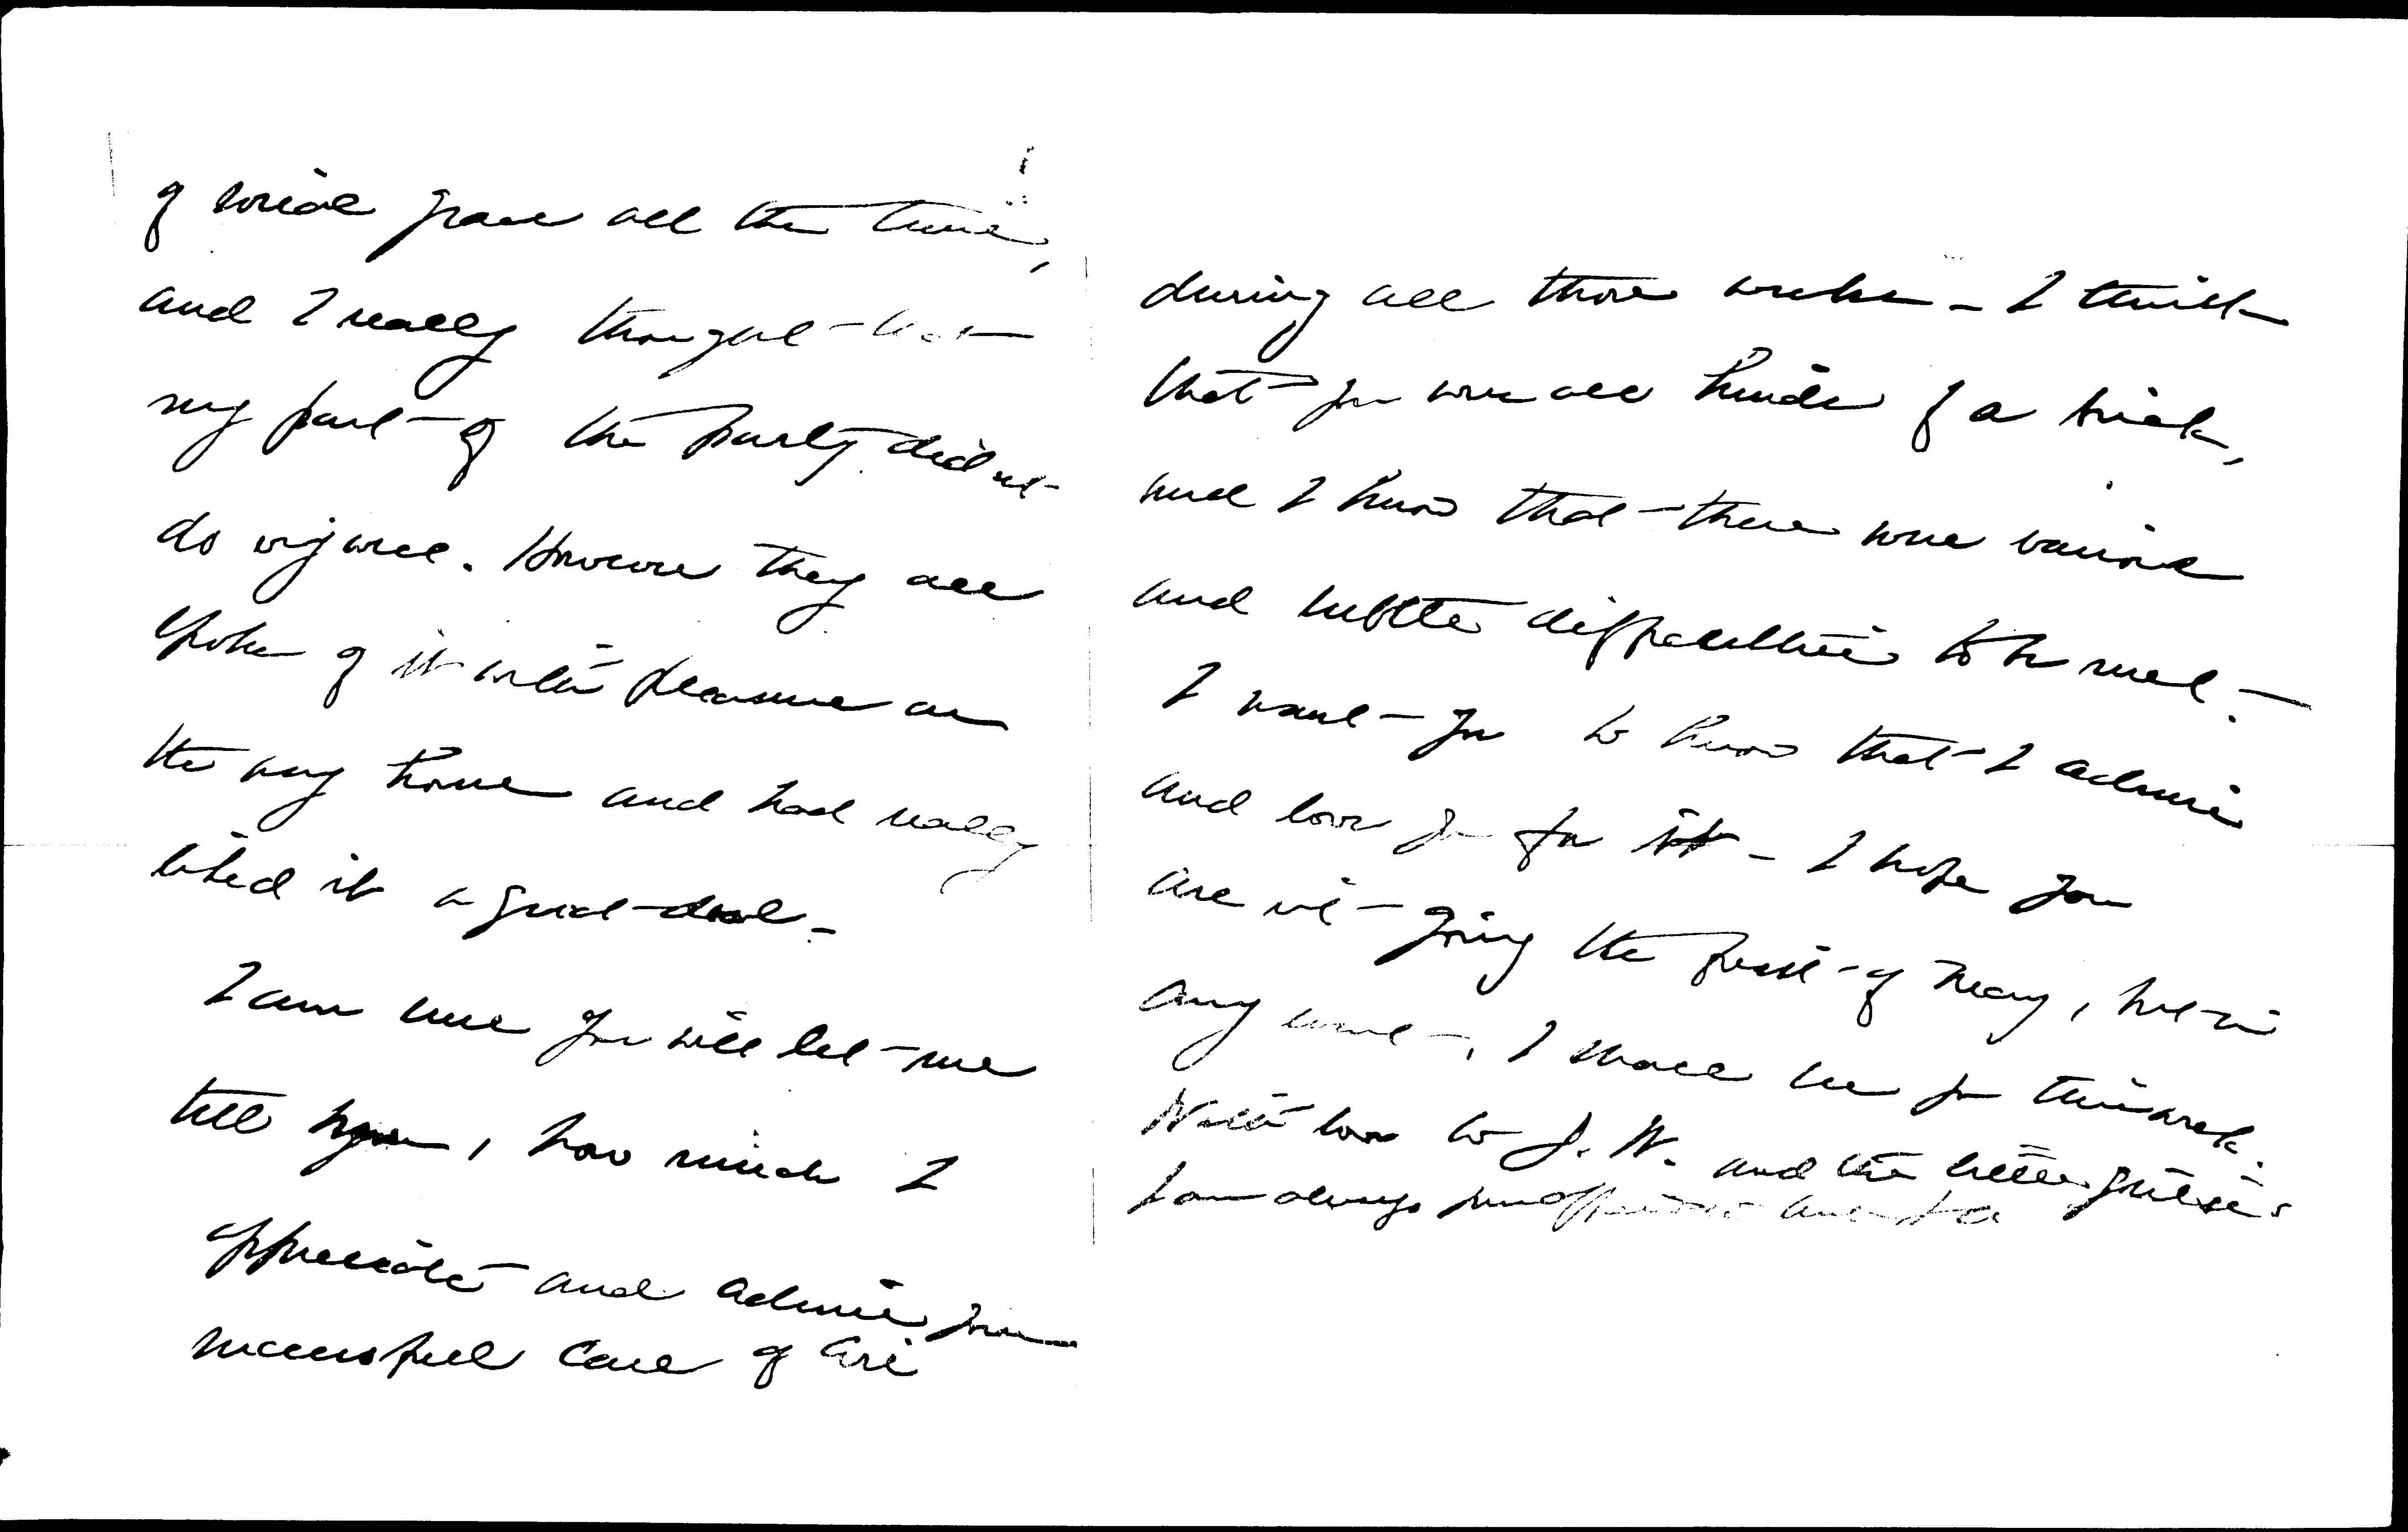 of social grace all the time,
and I really thought that
my part of the party didn't
do very well. However they all
spoke of it with pleasure on
the way home and had really
liked it a good deal -
I am sure you will let me
tell you, how much I
appreciate and admire your
successful care of
during all those weeks - I think
that you were all kinds of a brick,
and I know that there were various
and subtle difficulties to be met -
I want you to know that I admire
and love you for it - I hope you
are not going the first of May, but in
any event, I shall see you this week.
With love to J. W. and the little
I am always